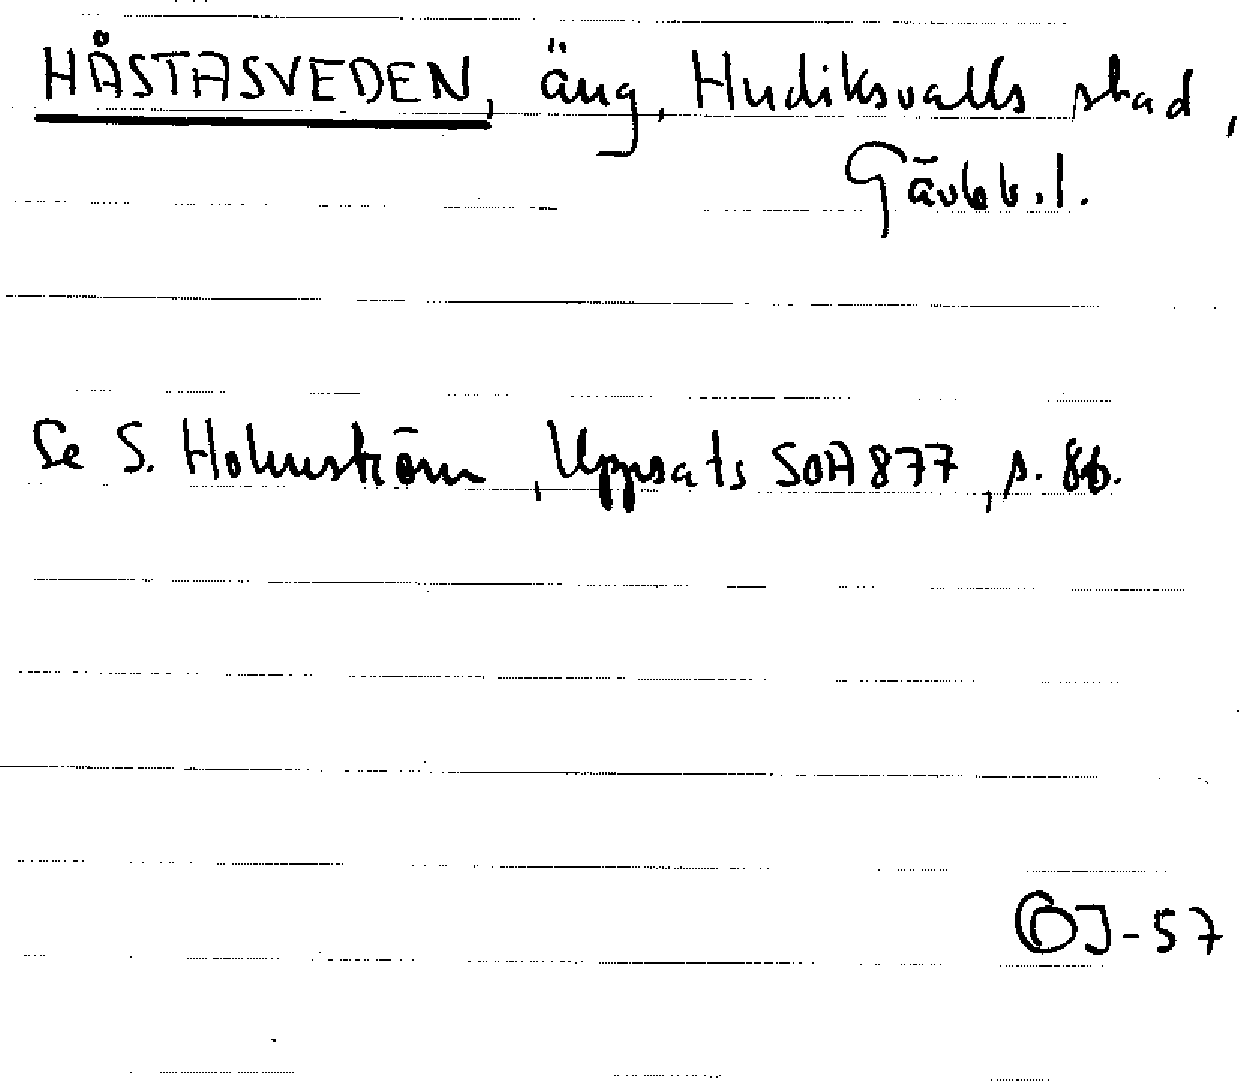 HÅSTASVEDEN, äng, Hudiksvalls stad,
Gävleb.l.
Se S. Holmström, Uppsats SOA 877, s. 86.